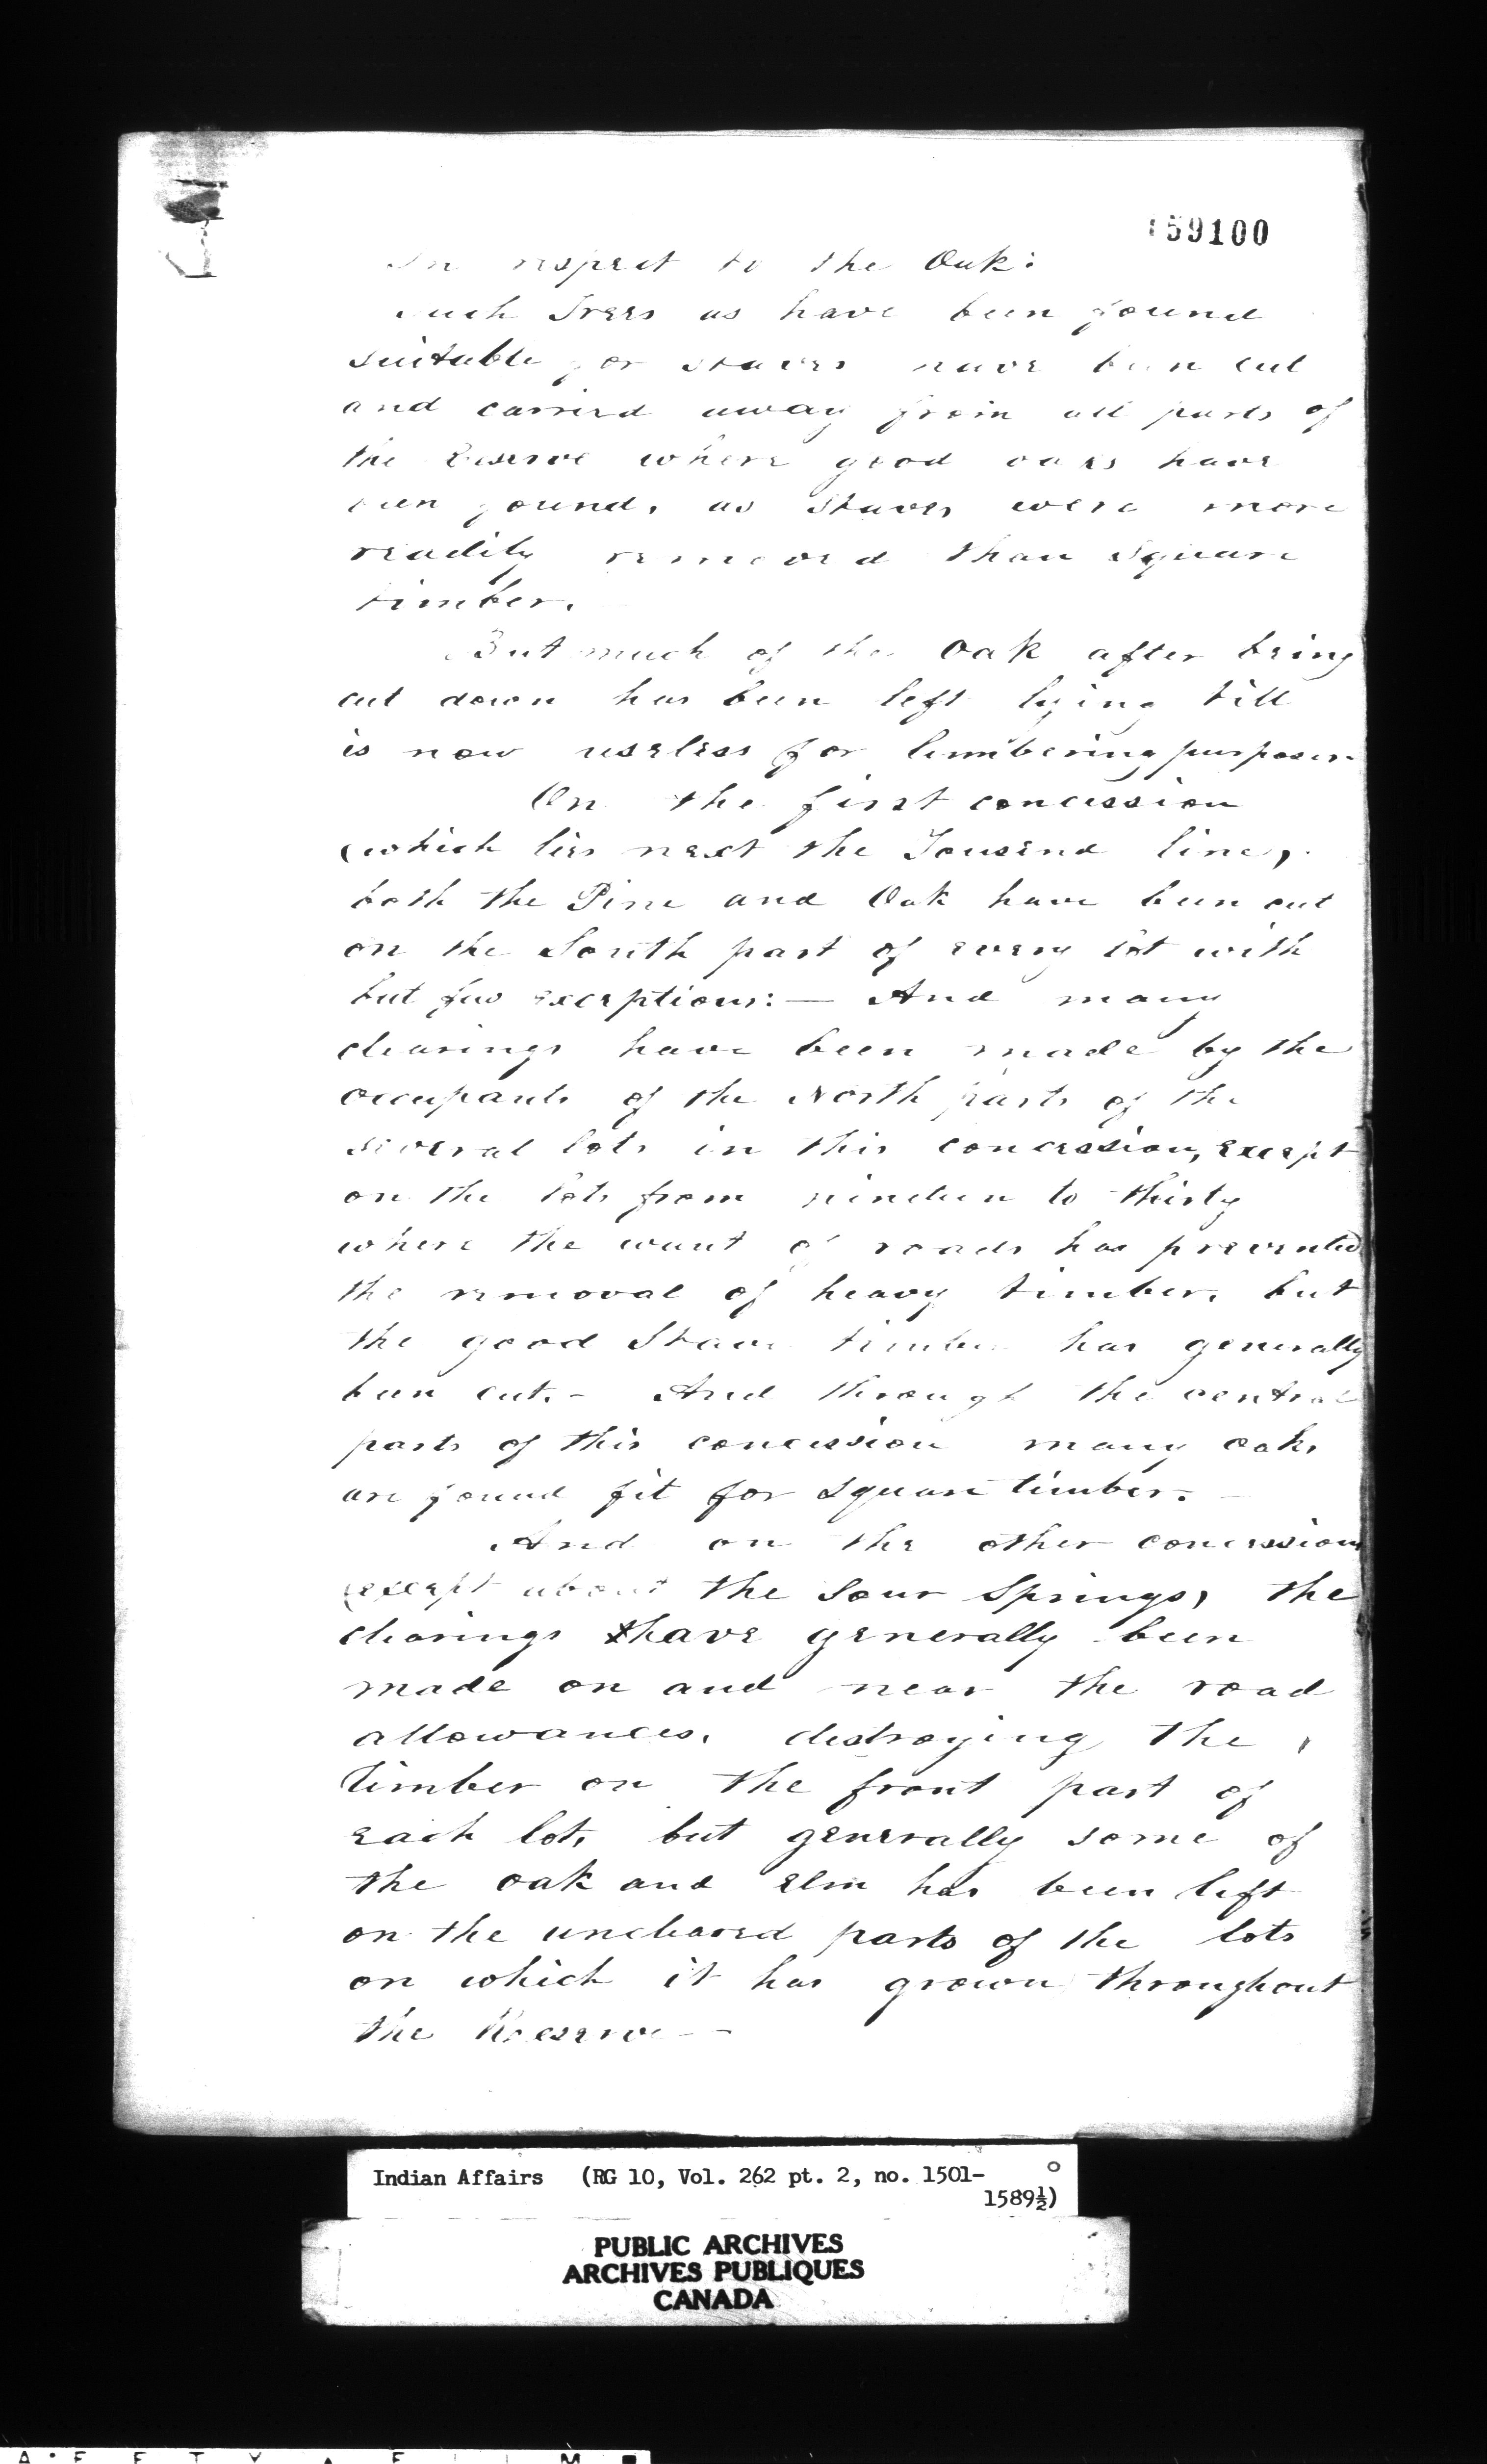 159100
In respect to the Oak:
Such Trees as have been found
suitable for staves have been cut
and carried away from all parts of
the Reserve where good oaks have
been found, as Staves were more
readily removed than Square
timber.
But much of the Oak after being
cut down has been left lying till
is now useless for lumbering purposes.
On the first concession
(which lies next the Tousend line,
both the Pine and Oak have been cut
on the South part of every lot with
but few exceptions: — And many
clearings have been made by the
occupants of the North parts of the
several lots in this concession, except
on the lots from nineteen to thirty
where the want of roads has prevented
the removal of heavy timber, but
the good Stave timber has generally
been cut. - And through the central
parts of this concession many oaks
are found fit for Square timber. -
And on the other concessions
(except about the Sour Springs, the
clearings have generally been
made on and near the road
allowances, destroying the
timber on the front part of
each lot, but generally some of
the oak and elm has been left
on the uncleared parts of the lots
on which it has grown throughout
the Reserve - -
Indian Affairs (RG 10, Vol. 262 pt. 2, no. 1501-
1589½)
PUBLIC ARCHIVES
ARCHIVES PUBLIQUES
CANADA